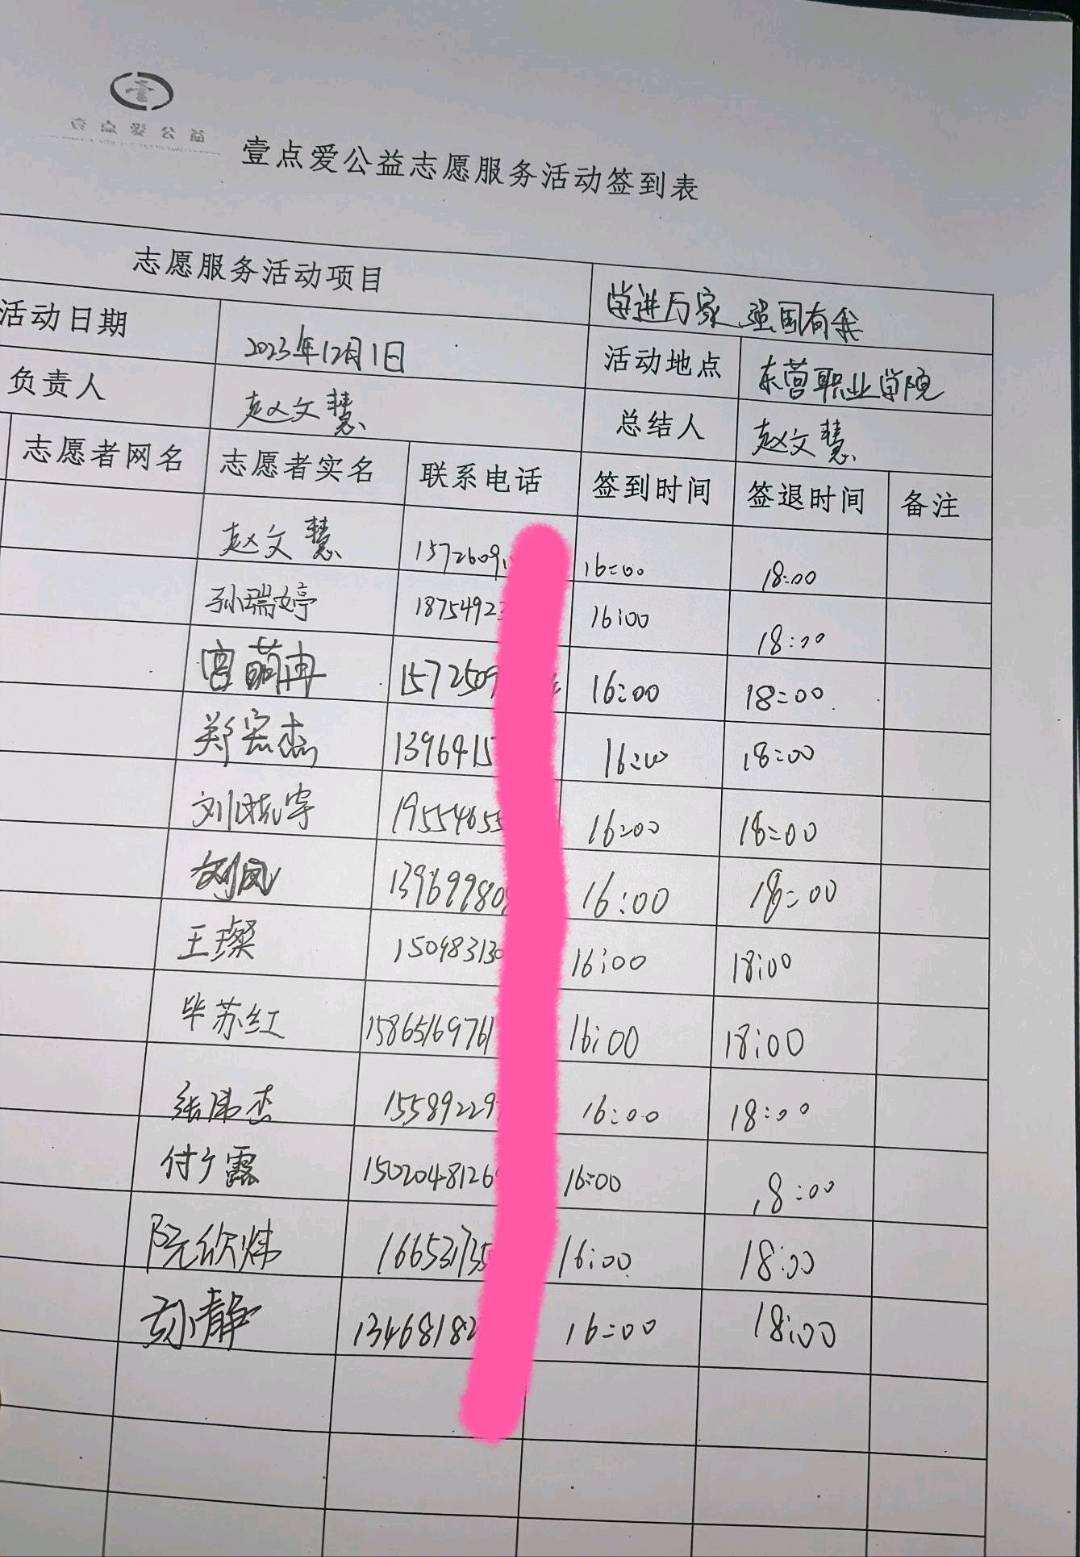 壹点爱公益
壹点爱公益志愿服务活动签到表
志愿服务活动项目 学进万家 强国有我
活动日期 2023年12月1日 活动地点 东营职业学院
负责人 赵文慧 总结人 赵文慧
志愿者网名 志愿者实名 联系电话 签到时间 签退时间 备注
赵文慧 1572609 16:00 18:00
孙瑞婷 1875492 16:00 18:00
宫萌冉 1572509 16:00 18:00
郑宏杰 1396415 16:00 18:00
刘晓宇 19554655 16:00 18:00
刘凤 13969980 16:00 18:00
王璨 15098313 16:00 18:00
毕苏红 1586516976 16:00 18:00
张沛杰 15589229 16:00 18:00
付广露 150204812 16:00 18:00
阮欣炜 16653735 16:00 18:00
彭静 13468182 16:00 18:00